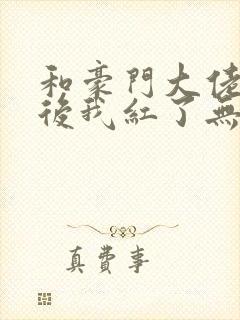 和豪門大佬
後我紅了無
真費事